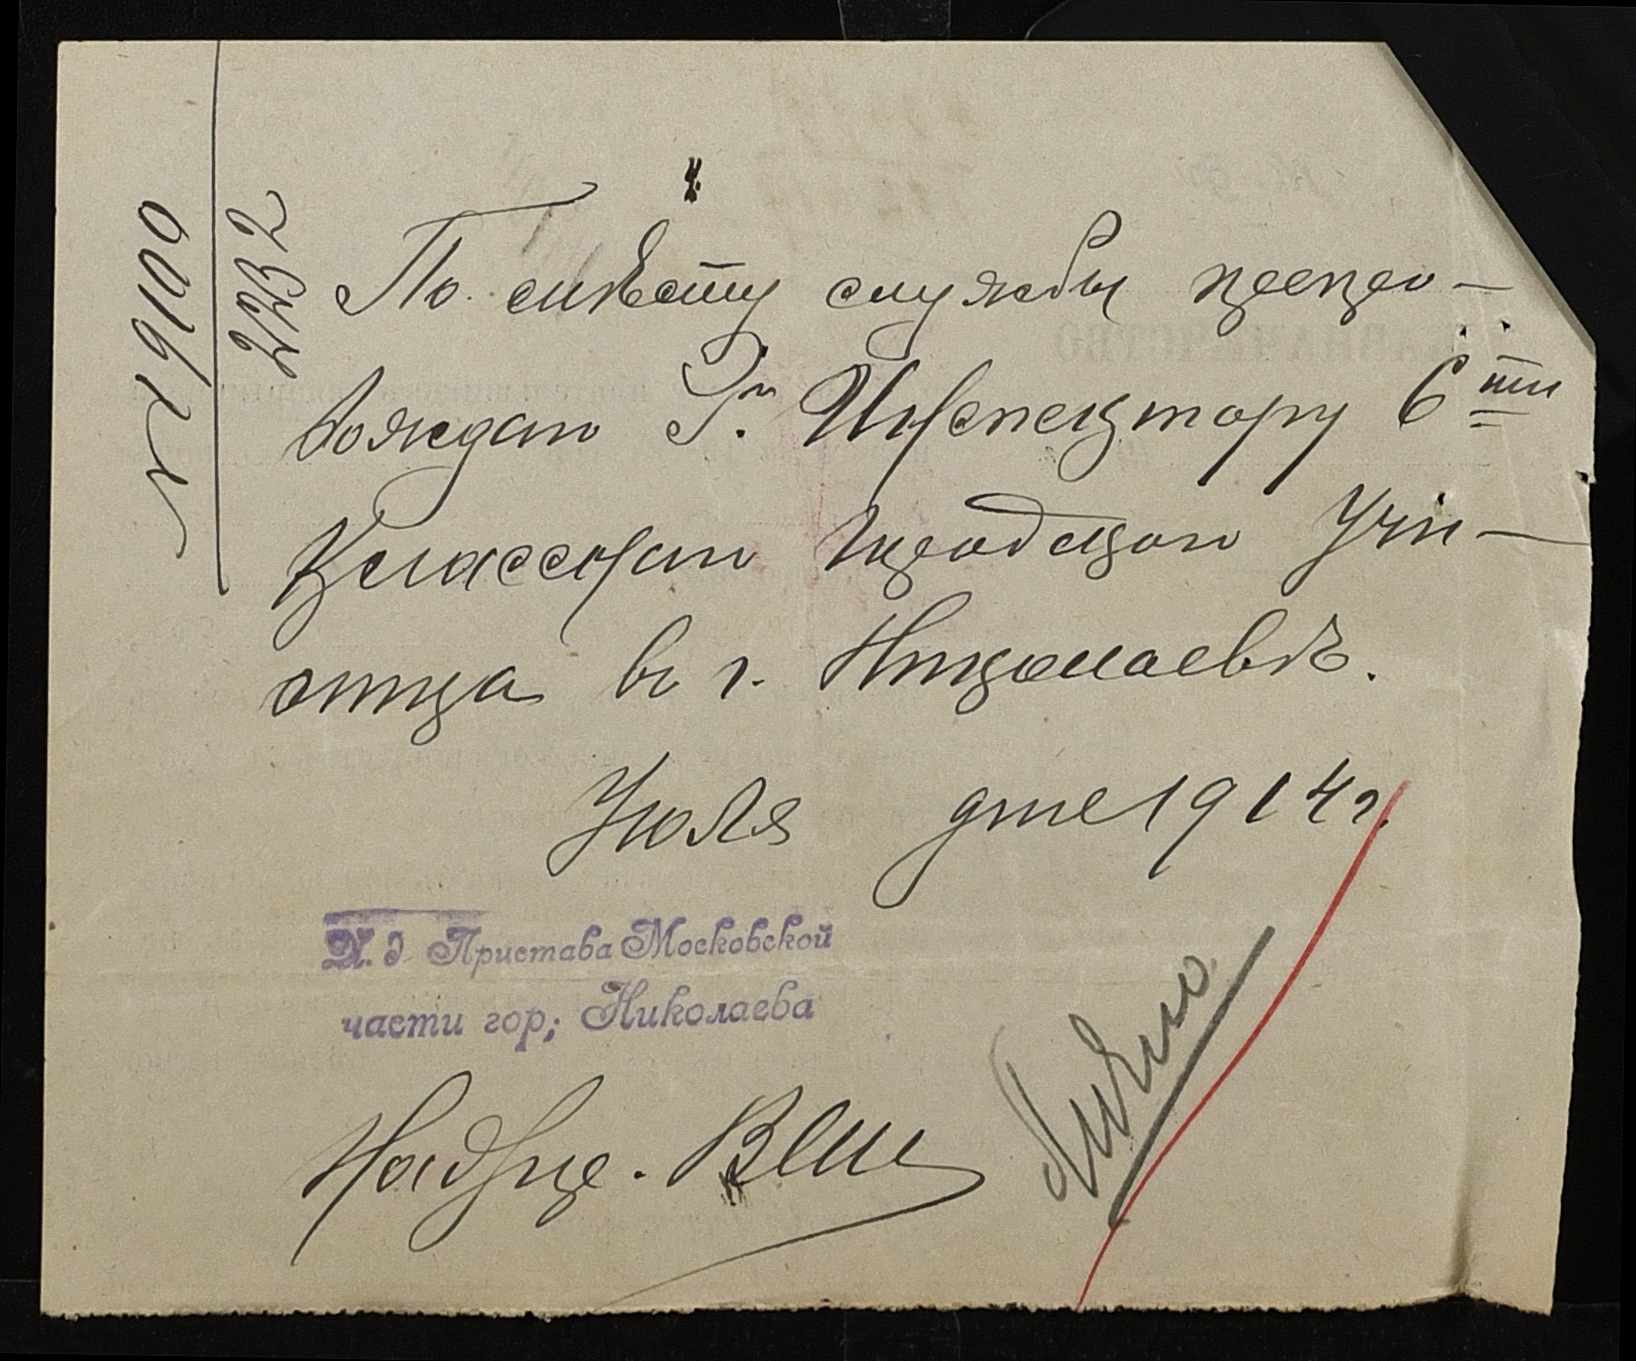 № 19100
2232
По мѣсту службы препро-
вождаю Гⁿ. Инспектору 6ти
класснаго Городского Учи-
лища въ г. Николаевѣ.
Июля дня 1914 г.
И. д. Пристава Московской
части гор; Николаева